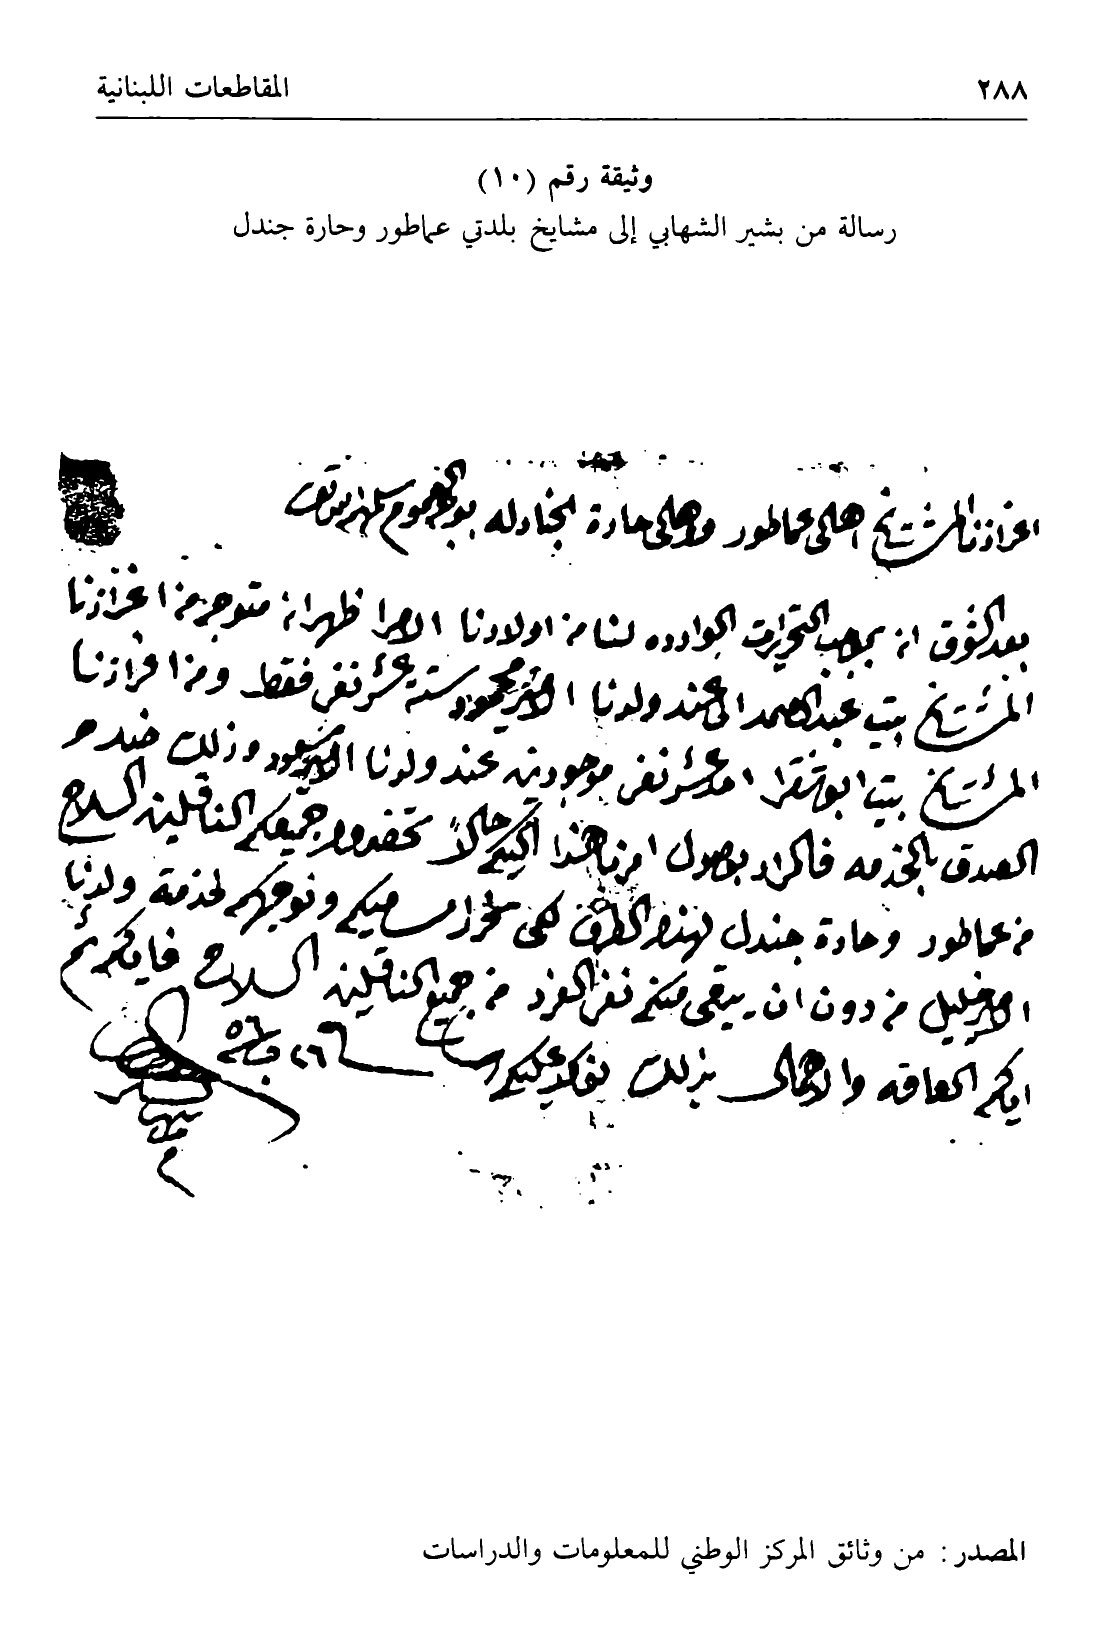 ٢٨٨
المقاطعات اللبنانية
وثيقة رقم (١٠)
رسالة من بشير الشهابي إلى مشايخ بلدتي عماطور وحارة جندل
اعزازنا المشايخ اهالي عماطور واهالي حارة الجنادله بوجه العموم سلمهم الله تعالى
بعد الشوق انه بموجب التحريرات الوارده لنا من اولادنا الامرا ظهر انه متوجه من اعزازنا
المشايخ بيت عبد الصمد الى عند ولدنا الامير محمود ستة عشر نفر فقط ومن اعزازنا
المشايخ بيت ابو شقرا احد عشر نفر موجودين عند ولدنا الامير مسعود وذلك ضد
الصدق بالخدمه فالمراد بوصول امرنا هذا اليكم حالاً تحضروا جميعكم الناقلين السلاح
من عماطور وحارة جندل لهذا الطرف لكي نحرر اساميكم ونوجهكم لخدمة ولدنا
الامير خليل من دون ان يبقى منكم نفر الفرد من جميع الناقلين السلاح فاياكم ثم
اياكم العاقه والاهمال بذلك نؤكد عليكم ٢٦ سنة ٥٦
المصدر: من وثائق المركز الوطني للمعلومات والدراسات